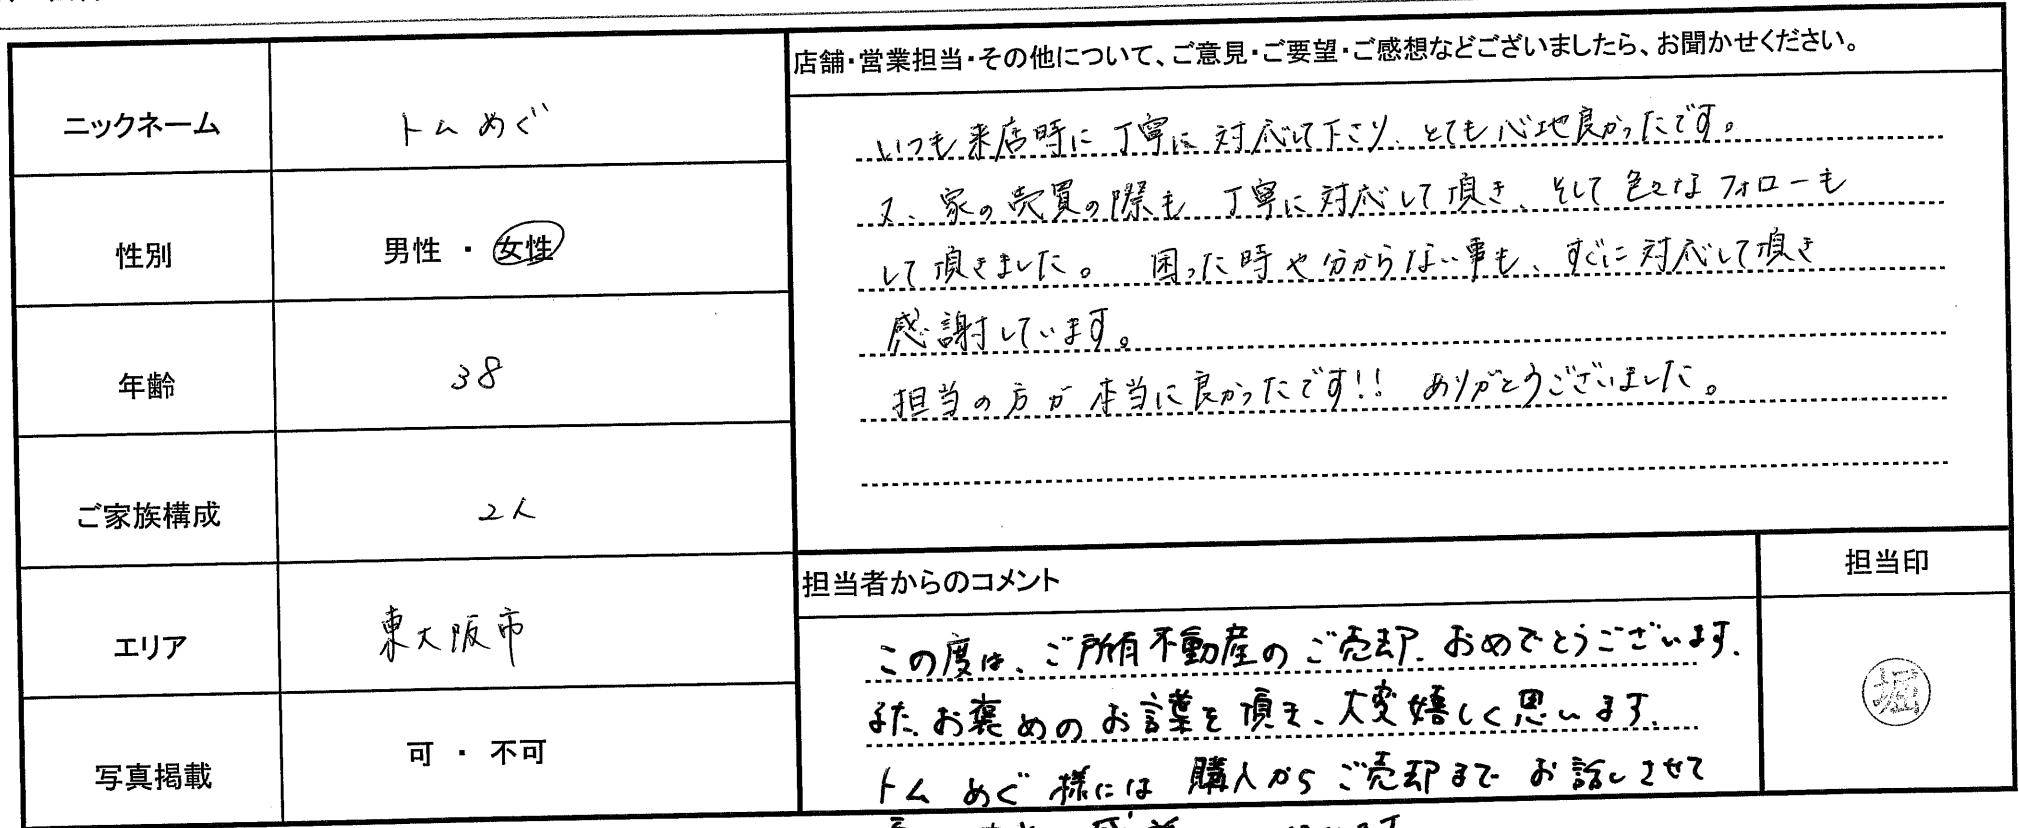 ニックネーム
トムめぐ
性別
男性 ・ 女性
年齢
38
ご家族構成
2人
エリア
東大阪市
写真掲載
可 ・ 不可
店舗・営業担当・その他について、ご意見・ご要望・ご感想などございましたら、お聞かせください。
いつも来店時に丁寧に対応して下さり、とても心地良かったです。
又、家の売買の際も丁寧に対応して頂き、そして色々なフォローも
して頂きました。 困った時や分からない事も、すぐに対応して頂き
感謝しています。
担当の方が本当に良かったです!! ありがとうございました。
担当者からのコメント
この度は、ご所有不動産のご売却、おめでとうございます。
また、お褒めのお言葉を頂き、大変嬉しく思います。
トムめぐ様には購入からご売却までお話しさせて
担当印
堀